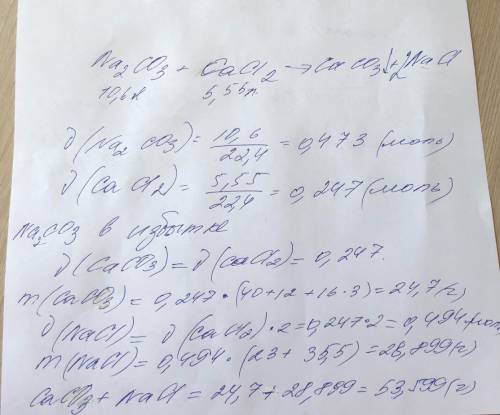 Na₂CO₃ + CaCl₂ → CaCO₃↓ + 2NaCl
10,6л 5,55л
ν(Na₂CO₃) = 10,6/22,4 = 0,473 (моль)
ν(CaCl₂) = 5,55/22,4 = 0,247 (моль)
Na₂CO₃ в избытке
ν(CaCO₃) = ν(CaCl₂) = 0,247.
m(CaCO₃) = 0,247 · (40+12+16·3) = 24,7 (г)
ν(NaCl) = ν(CaCl₂)·2 = 0,247·2 = 0,494 моль
m(NaCl) = 0,494 · (23 + 35,5) = 28,899 (г)
CaCO₃ + NaCl = 24,7 + 28,899 = 53,599 (г)